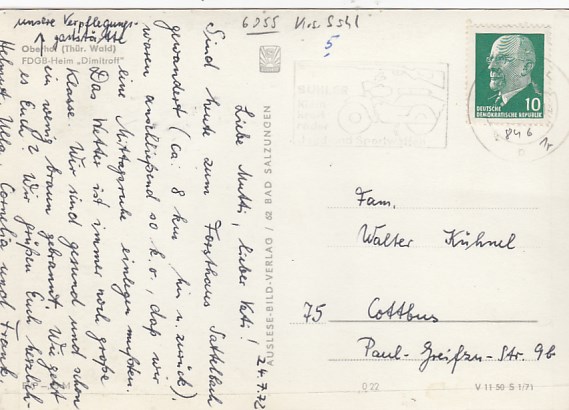 unsere Verpflegungs-
gaststätte
Oberhof (Thür. Wald)
FDGB-Heim „Dimitroff"
24.7.72
Liebe Mutti, lieber Vati!
Sind heute zum Forsthaus Sattelbach
gewandert (ca. 8 km hin u. zurück),
waren anschließend so k.o., daß wir
eine Mittagsruhe einlegen mußten.
Das Wetter ist immer noch große
Klasse. Wir sind gesund und schon
ein wenig braun gebrannt. Wie geht
es Euch? Wir grüßen Euch herzlich
Helmut, Cornelia und Frank
AUSLESE-BILD-VERLAG / 62 BAD SALZUNGEN
6055
5,
DEUTSCHE
DEMOKRATISCHE REPUBLIK
10
846
Fam.
Walter Kühnel
75 Cottbus
Paul-Greifzu-Str. 9b
D 22
V 11 50 S 1/71